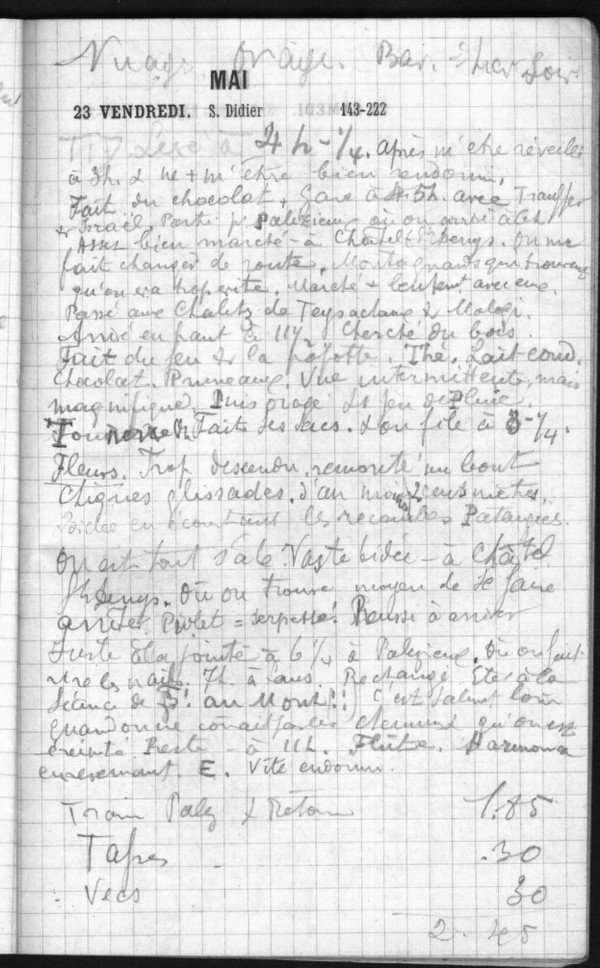 Nuag. Orage. Bar. Sûr
MAI
23 VENDREDI. S. Didier 143-222
Levé à 4 h - 1/4. après m'être réveillé
à 3h. & ne + m'être bien rendormi.
Fait du chocolat, gare à 5h. avec
& Israël Parti pr Palézieux où on arrive à 6h
Assez bien marché - à Châtel St Denys. On me
fait changer de route. Montagnards qui trouvent
qu'on va trop vite. Marché + lentement avec eux.
Passé aux Chalets de Teysachaux &
Arrivé en haut à 11 1/2. Cherché du bois.
Fait du feu & la popotte. Thé. Lait cond.
Chocolat. Pruneaux. Vue intermittente, mais
magnifique. Puis orage & un peu de Pluie.
Tonnerre. Faits les sacs. & on file à 3 - 1/4.
Fleurs. Trop descendu, remonté un bout
Chiques glissades. d'au moins 2 cents mètres.
en écoutant les Pataugées.
On est tout sale. Vaste bidée - à Châtel
St Denys. Où on trouve moyen de se faire
arrêter. Piolet = serpette! Réussi à arriver
Juste à 6 1/4 à Palézieux. Où on fait
7h à Laus. Rechangé. Été à la
séance de au Mont!! C'est salem. loin
quand on ne connait pas le chemin & qu'on est
éreinté. Resté - à 11h. Flûte. Harmonica
E. Vite endormi.
Train Palez & Retour 1.85
Tapes .30
Vecs 30
2.45